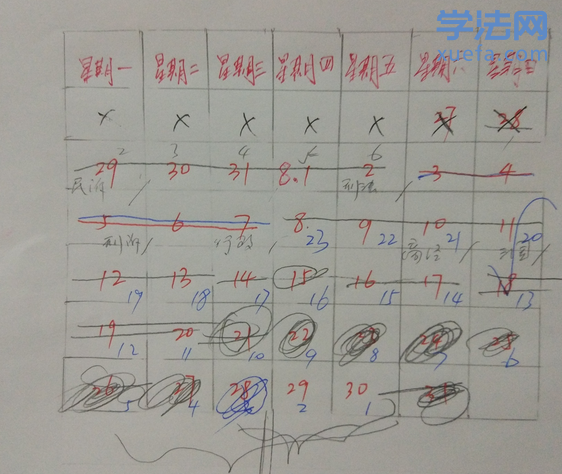 学法网
xuefa.com
星期一 星期二 星期三 星期四 星期五 星期六
× × × × × 27 28
2 3 4 5 6
29 30 31 8.1 2 3 4
民诉/ 刑法/
5 6 7 8 9 10 11
23 22 21 20
刑诉/
12 13 14 15 16 17 18
19 18 17 16 15 14 13
19 20 21 22 23 24 25
12 11 10 9 8 7 6
26 27 28 29 30 31
5 4 3 2 1